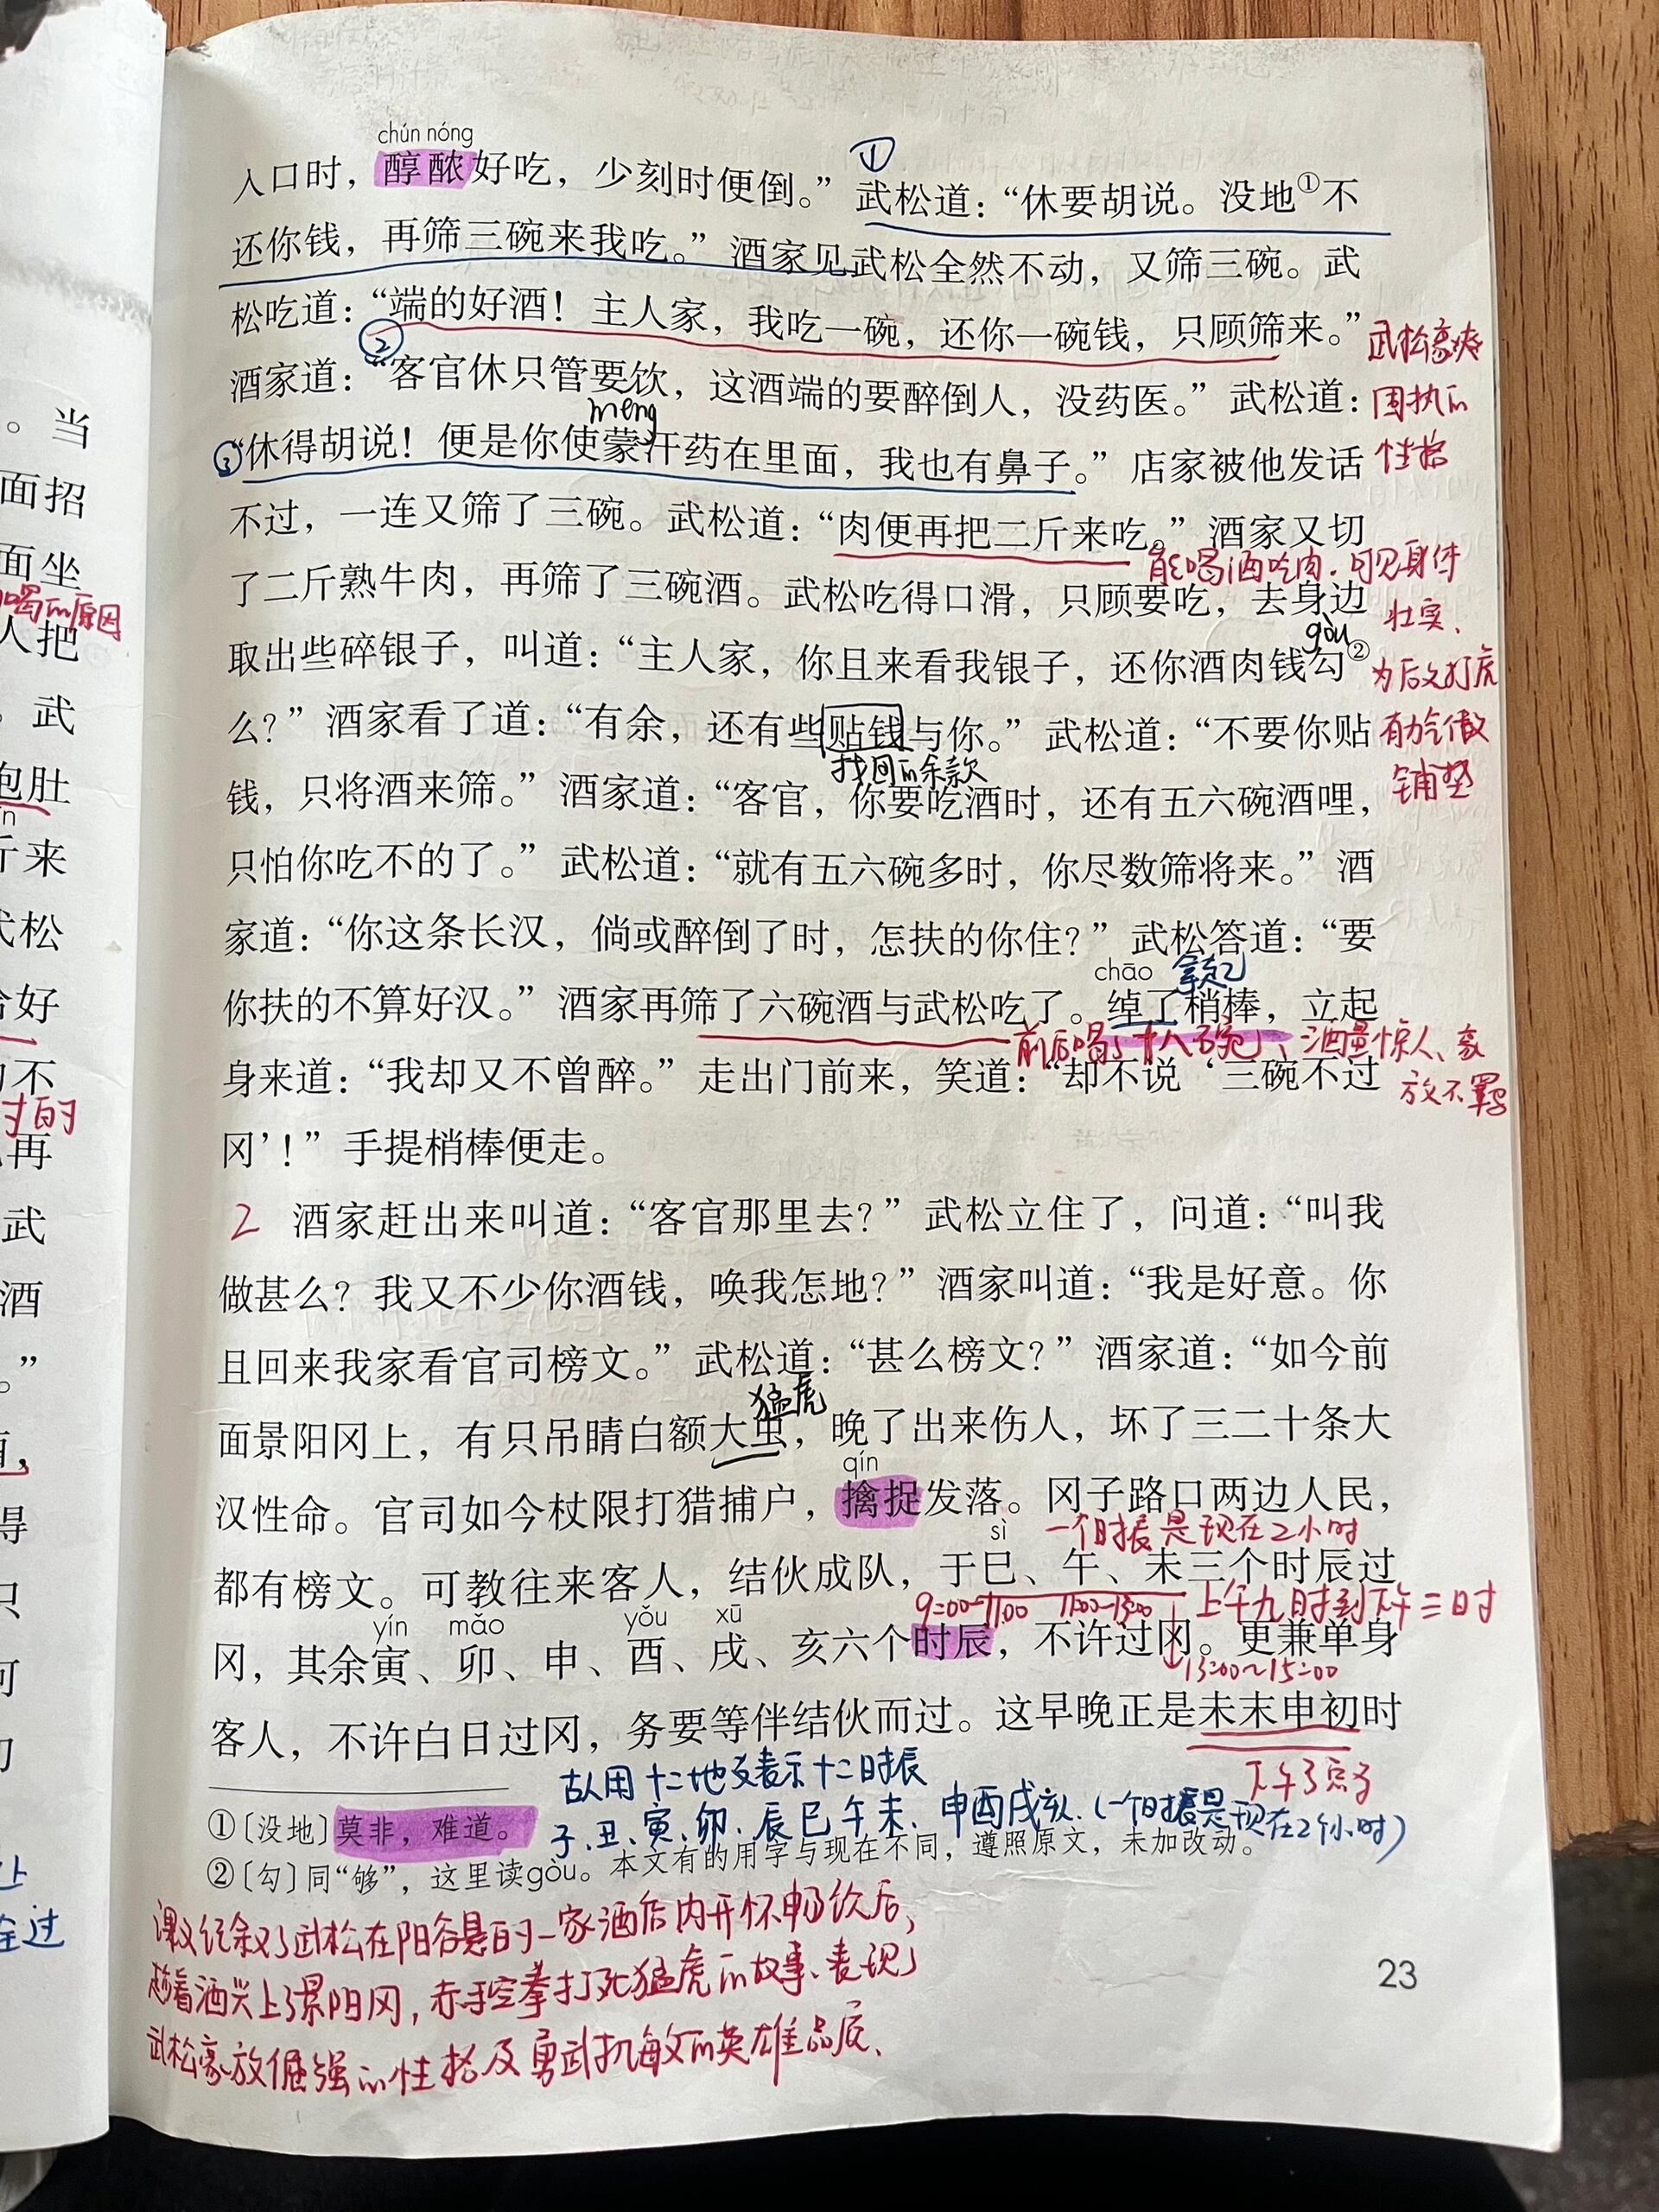 chún nóng
入口时，醇酿好吃，少刻时便倒。”武松道：“休要胡说。没地①不
①
还你钱，再筛三碗来我吃。”酒家见武松全然不动，又筛三碗。武
松吃道：“端的好酒！主人家，我吃一碗，还你一碗钱，只顾筛来。”
武松豪爽
②
酒家道：“客官休只管要饮，这酒端的要醉倒人，没药医。”武松道：
固执的
méng
③
“休得胡说！便是你使蒙汗药在里面，我也有鼻子。”店家被他发话
性格
不过，一连又筛了三碗。武松道：“肉便再把二斤来吃。”酒家又切
能喝酒吃肉，可见身体
了二斤熟牛肉，再筛了三碗酒。武松吃得口滑，只顾要吃，去身边
壮实，
gòu
取出些碎银子，叫道：“主人家，你且来看我银子，还你酒肉钱勾②
为后文打虎
么？”酒家看了道：“有余，还有些贴钱与你。”武松道：“不要你贴
有力气做
找回的余款
钱，只将酒来筛。”酒家道：“客官，你要吃酒时，还有五六碗酒哩，
铺垫
只怕你吃不的了。”武松道：“就有五六碗多时，你尽数筛将来。”酒
家道：“你这条长汉，倘或醉倒了时，怎扶的你住？”武松答道：“要
chāo 拿起
你扶的不算好汉。”酒家再筛了六碗酒与武松吃了。绰了梢棒，立起
前后喝了十八碗，酒量惊人、豪
身来道：“我却又不曾醉。”走出门前来，笑道：“却不说‘三碗不过
放不羁
冈’！”手提梢棒便走。
2 酒家赶出来叫道：“客官那里去？”武松立住了，问道：“叫我
做甚么？我又不少你酒钱，唤我怎地？”酒家叫道：“我是好意。你
且回来我家看官司榜文。”武松道：“甚么榜文？”酒家道：“如今前
猛虎
面景阳冈上，有只吊睛白额大虫，晚了出来伤人，坏了三二十条大
qín
汉性命。官司如今杖限打猎捕户，擒捉发落。冈子路口两边人民，
sì 一个时辰是现在2小时
都有榜文。可教往来客人，结伙成队，于巳、午、未三个时辰过
9:00-11:00 11:00-13:00 上午九时到下午三时
yín mǎo yǒu xū
冈，其余寅、卯、申、酉、戌、亥六个时辰，不许过冈。更兼单身
13:00~15:00
客人，不许白日过冈，务要等伴结伙而过。这早晚正是未末申初时
下午3点了
古人用十二地支表示十二时辰
子、丑、寅、卯、辰巳午未、申酉戌亥、(一个时辰是现在2个小时)
①〔没地〕莫非，难道。
②〔勾〕同“够”，这里读gòu。本文有的用字与现在不同，遵照原文，未加改动。
课文记叙了武松在阳谷县的一家酒店内开怀畅饮后，
趁着酒兴上了景阳冈，赤手空拳打死猛虎的故事、表现了
武松豪放倔强的性格及勇武机敏的英雄品质、
23